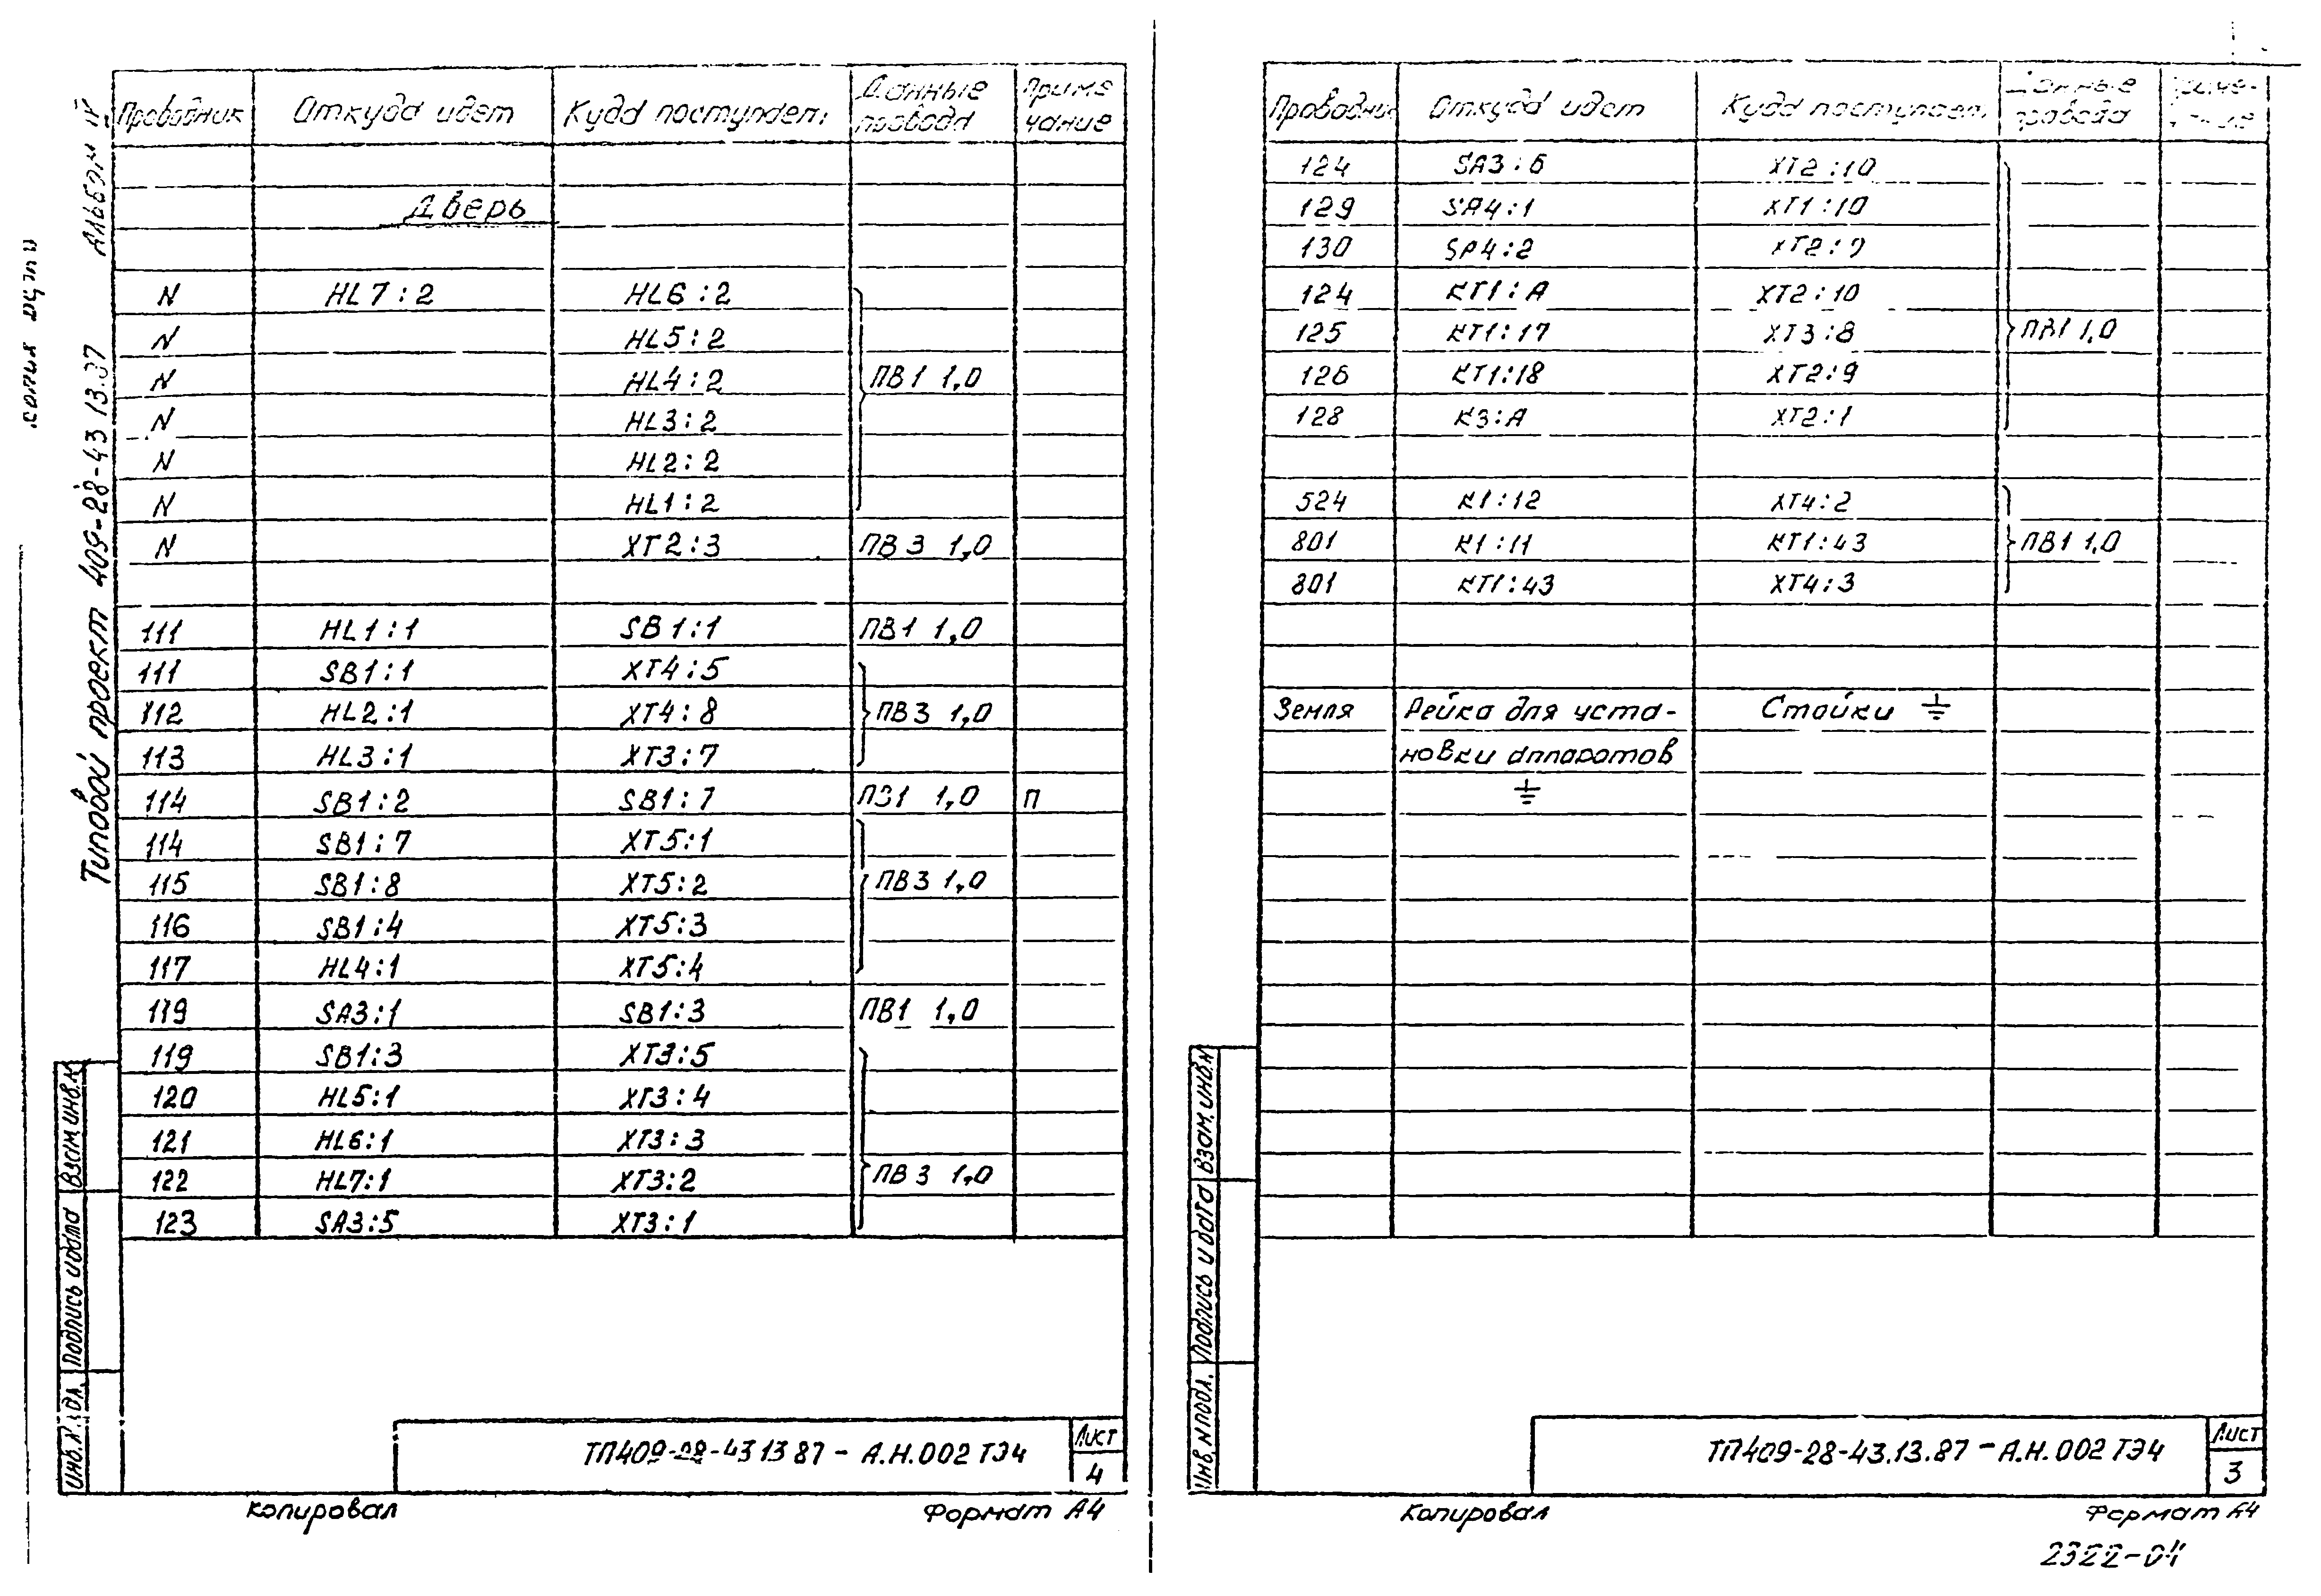 Альбом IV
Типовой проект 409-28-43.13.87
Проводник Откуда идет Куда поступает Данные провода Приме чание
Дверь
N HL7:2 HL6:2
N HL5:2
N HL4:2 ПВ1 1,0
N HL3:2
N HL2:2
N HL1:2
N XT2:3 ПВ3 1,0
111 HL1:1 SB1:1 ПВ1 1,0
111 SB1:1 XT4:5
112 HL2:1 XT4:8 ПВ3 1,0
113 HL3:1 XT3:7
114 SB1:2 SB1:7 ПВ1 1,0 П
114 SB1:7 XT5:1
115 SB1:8 XT5:2 ПВ3 1,0
116 SB1:4 XT5:3
117 HL4:1 XT5:4
119 SA3:1 SB1:3 ПВ1 1,0
119 SB1:3 XT3:5
120 HL5:1 XT3:4
121 HL6:1 XT3:3
122 HL7:1 XT3:2 ПВ3 1,0
123 SA3:5 XT3:1
Взам.инв.N
Подпись и дата
Инв.N подл.
ТП409-28-43.13.87-А.Н.002 ТЭ4
Лист
4
Копировал Формат А4
Проводник Откуда идет Куда поступает Данные провода Приме-чание
124 SA3:6 XT2:10
129 SA4:1 XT1:10
130 SA4:2 XT2:9
124 KT1:A XT2:10
125 KT1:17 XT3:8 ПВ1 1,0
126 KT1:18 XT2:9
128 K3:A XT2:1
524 K1:12 XT4:2
801 K1:11 KT1:43 ПВ1 1,0
801 KT1:43 XT4:3
Земля Рейка для уста- Стойки ⏚
новки аппаратов
⏚
Взам.инв.N
Подпись и дата
Инв.N подл.
ТП409-28-43.13.87-А.Н.002 ТЭ4
Лист
3
Копировал Формат А4
2322-04